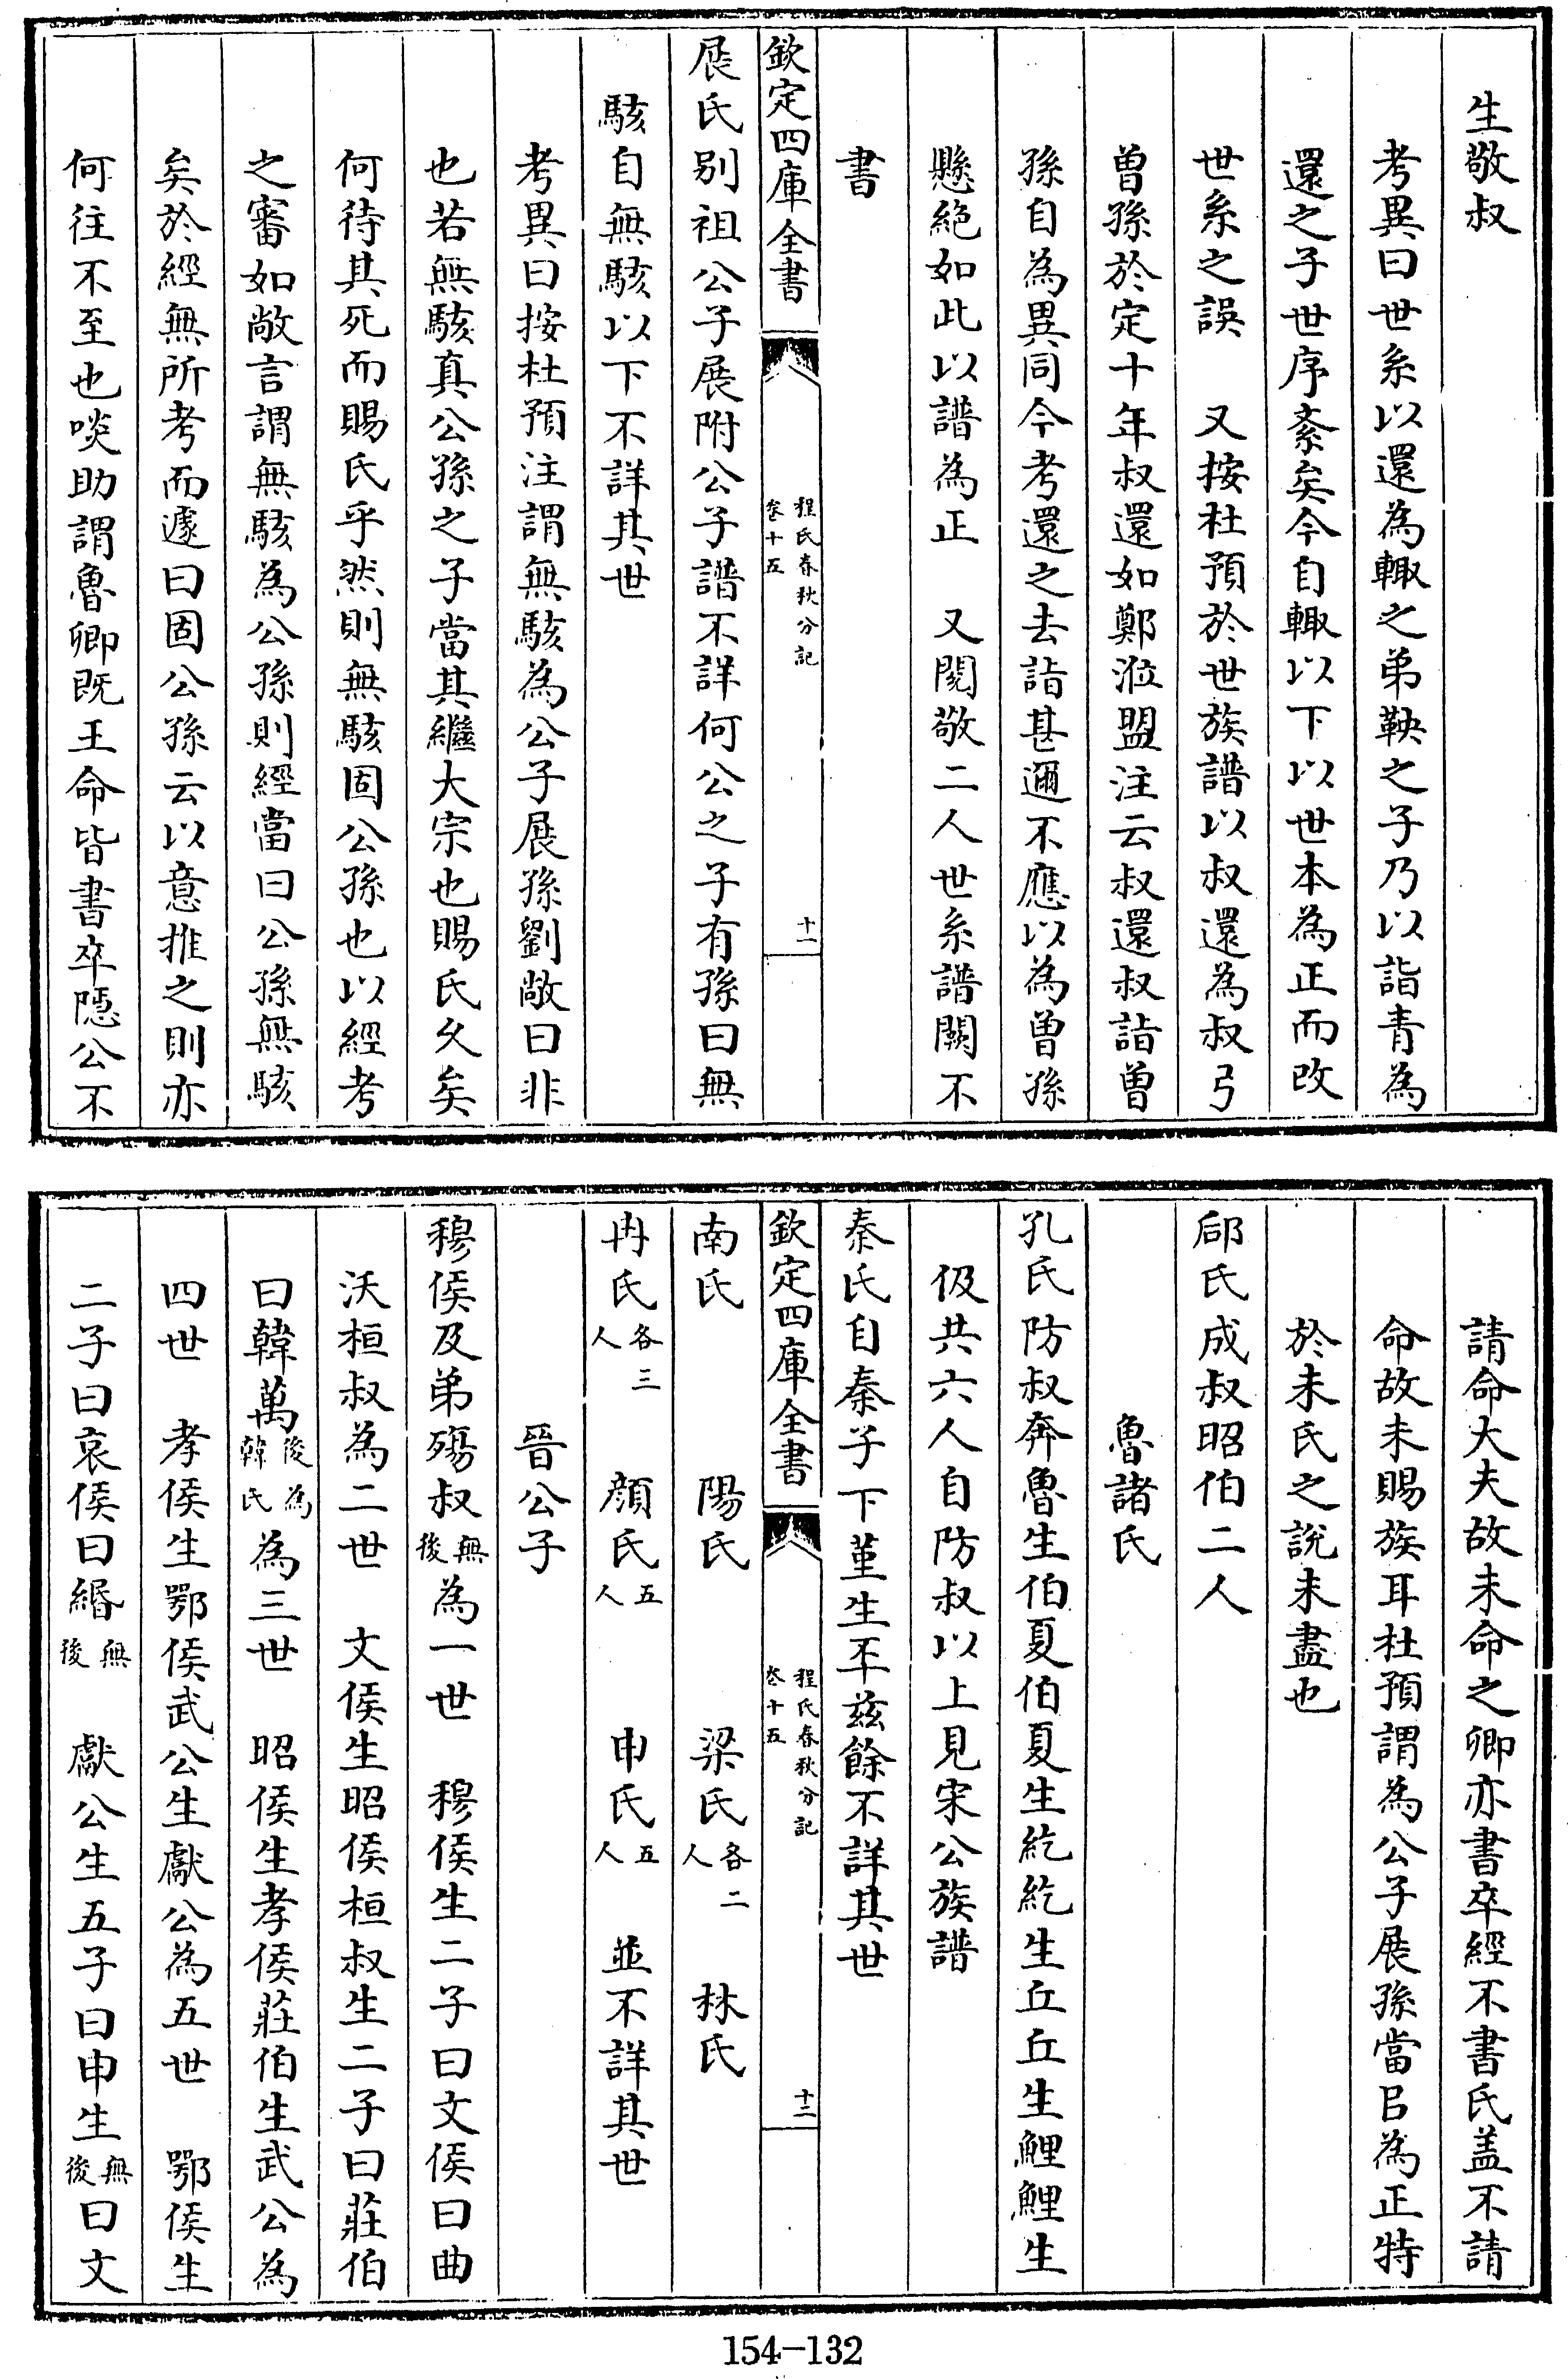 生敬叔
考異曰世系以還為輙之弟鞅之子乃以詣青為
還之子世序紊矣今自輙以下以世本為正而改
世系之誤　又按杜預於世族譜以叔還為叔弓
曾孫於定十年叔還如鄭涖盟注云叔還叔詣曽
孫自為異同今考還之去詣甚邇不應以為曽孫
懸絶如此以譜為正　又閱敬二人世系譜闕不
書
欽定四庫全書　程氏春秋分記卷十五　十一
展氏别祖公子展附公子譜不詳何公之子有孫曰無
駭自無駭以下不詳其世
考異曰按杜預注謂無駭為公子展孫劉敞曰非
也若無駭真公孫之子當其繼大宗也賜氏久矣
何待其死而賜氏乎然則無駭固公孫也以經考
之審如敞言謂無駭為公孫則經當曰公孫無駭
矣於經無所考而遽曰固公孫云以意推之則亦
何往不至也啖助謂魯卿既王命皆書卒隱公不
請命大夫故未命之卿亦書卒經不書氏盖不請
命故未賜族耳杜預謂為公子展孫當㠯為正特
於未氏之說未盡也
郈氏成叔昭伯二人
魯諸氏
孔氏防叔奔魯生伯夏伯夏生紇紇生丘丘生鯉鯉生
伋共六人自防叔以上見宋公族譜
秦氏自秦子下堇生丕兹餘不詳其世
欽定四庫全書　程氏春秋分記卷十五　十二
南氏　陽氏　梁氏各二人　林氏
冉氏各三人　顔氏五人　申氏五人　並不詳其世
晉公子
穆侯及弟殤叔無後為一世　穆侯生二子曰文侯曰曲
沃桓叔為二世　文侯生昭侯桓叔生二子曰莊伯
曰韓萬後為韓氏為三世　昭侯生孝侯莊伯生武公為
四世　孝侯生鄂侯武公生獻公為五世　鄂侯生
二子曰哀侯曰緡無後　獻公生五子曰申生無後曰文
154-132